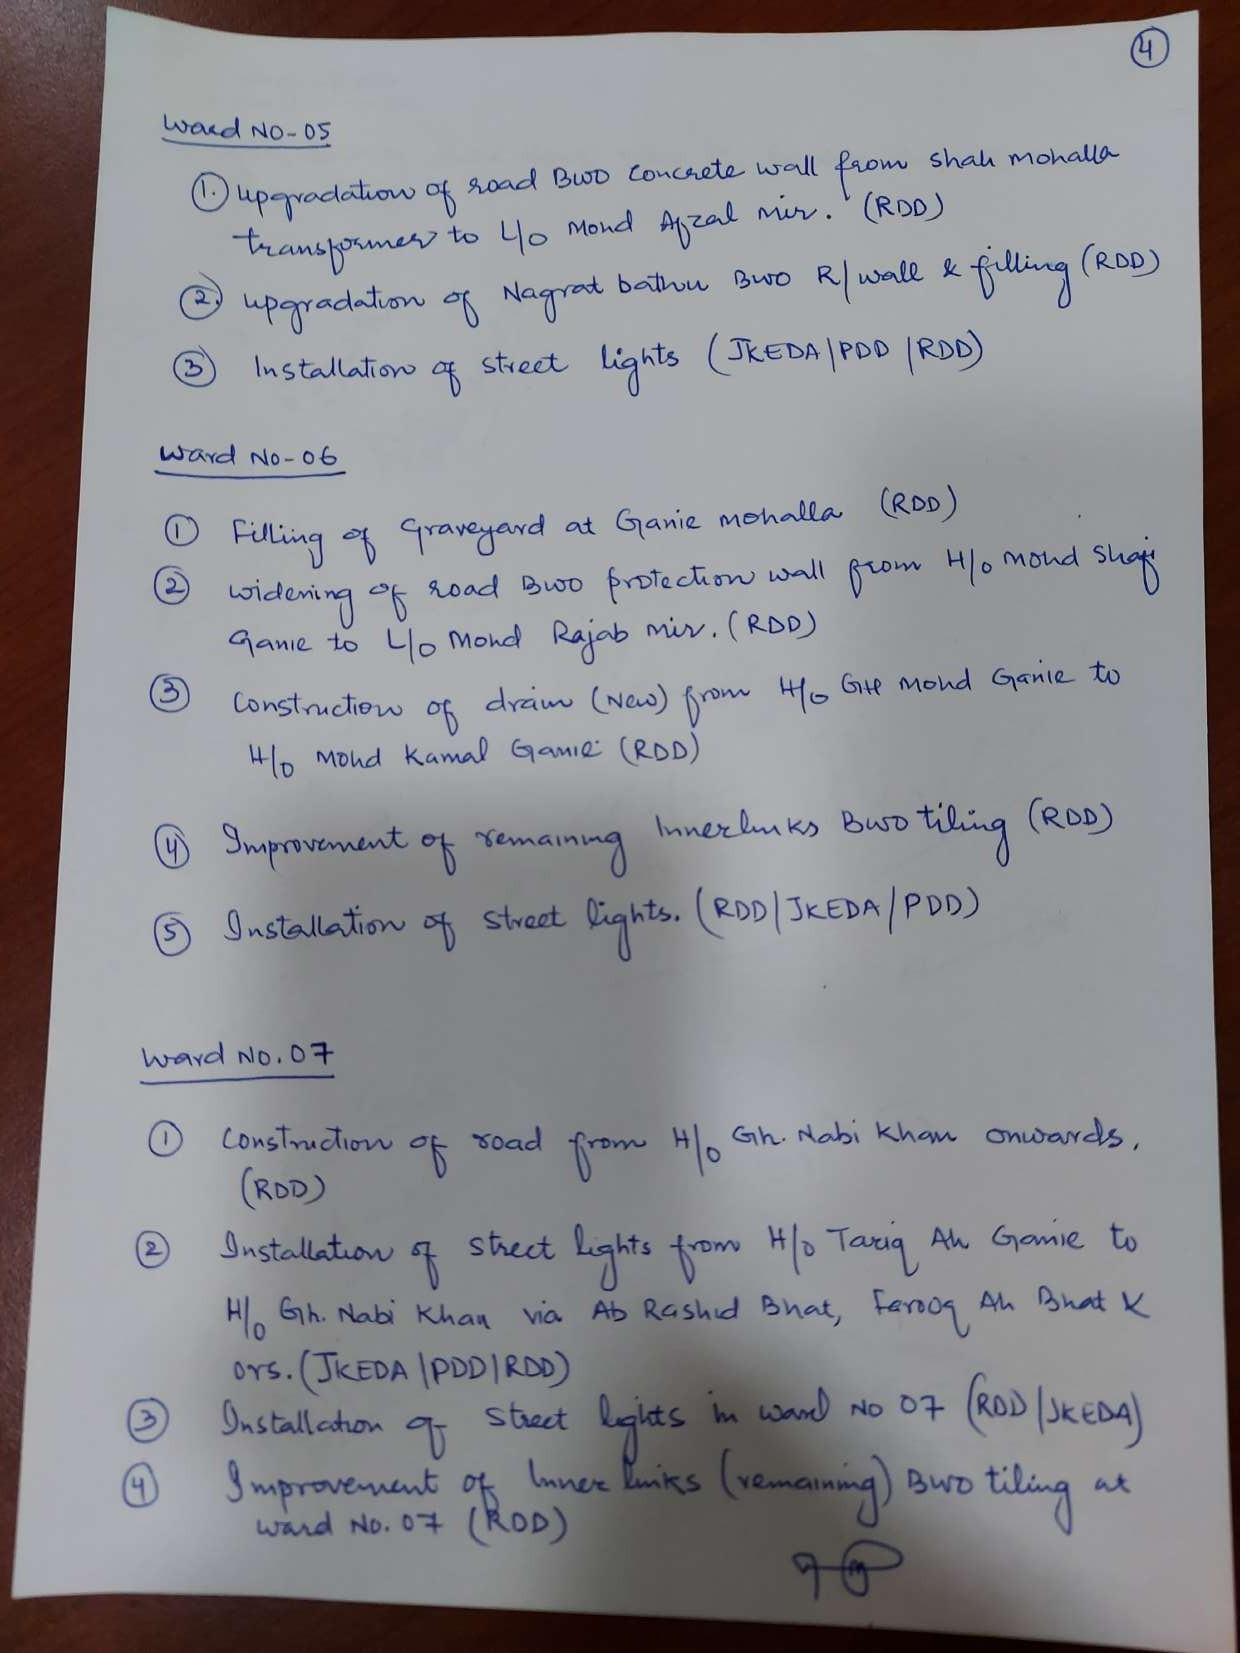 4
Ward NO-05
1. upgradation of road BWO Concrete wall from shah mohalla
transformer to L/o Mohd Afzal mir. (RDD)
2. upgradation of Nagrat bathu BWO R/wall & filling (RDD)
3 Installation of street lights (JKEDA/PDD/RDD)
Ward No-06
1 Filling of Graveyard at Ganie mohalla (RDD)
2 widening of road BWO protection wall from H/o Mohd Shafi
Ganie to L/o Mohd Rajab mir. (RDD)
3 Construction of drain (New) from H/o GH Mohd Ganie to
H/o Mohd Kamal Ganie (RDD)
4 Improvement of remaining Innerlinks BWO tiling (RDD)
5 Installation of street lights. (RDD/JKEDA/PDD)
Ward No. 07
1 Construction of road from H/o Gh. Nabi Khan onwards.
(RDD)
2 Installation of street lights from H/o Tariq Ah Ganie to
H/o Gh. Nabi Khan via Ab Rashid Bhat, Farooq Ah Bhat &
ors. (JKEDA/PDD/RDD)
3 Installation of street lights in ward No 07 (RDD/JKEDA)
4 Improvement of Inner links (remaining) BWO tiling at
ward No. 07 (RDD)